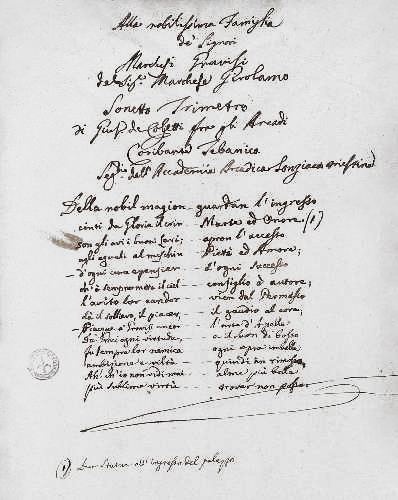 Alla nobilissima Famiglia
de' Signori
Marchesi Gravisi
del Sigr. Marchese Girolamo
Sonetto Trimetro
di Gius. de Coletti fra gli Arcadi
Coribante Tebanico
Segrio. dell' Accademia Arcadica Sonziaca Triestina
Della nobil magion guardan l'ingresso
cinti da Gloria il crin Marte ed Onore. (1)
son gli avi i buoni Lari; apron l'accesso
agli eguali al meschin Pietà ed Amore;
d'ogni cura e pensier d'ogni successo
ch'è sempre mosse il ciel consiglio è autore;
l'avito lor candor vien dal Permesso
dà il sollievo, il piacer, il gaudio al core,
Piacque a
ogni virtude, a il suon di
fu sempre lor nemica ogni opra imbelle
ambizione e viltà quindi
Ah! ch'io non vidi mai alme più belle
più sublime virtù trovar non posso
(1) Due Statue all' ingresso del palazzo